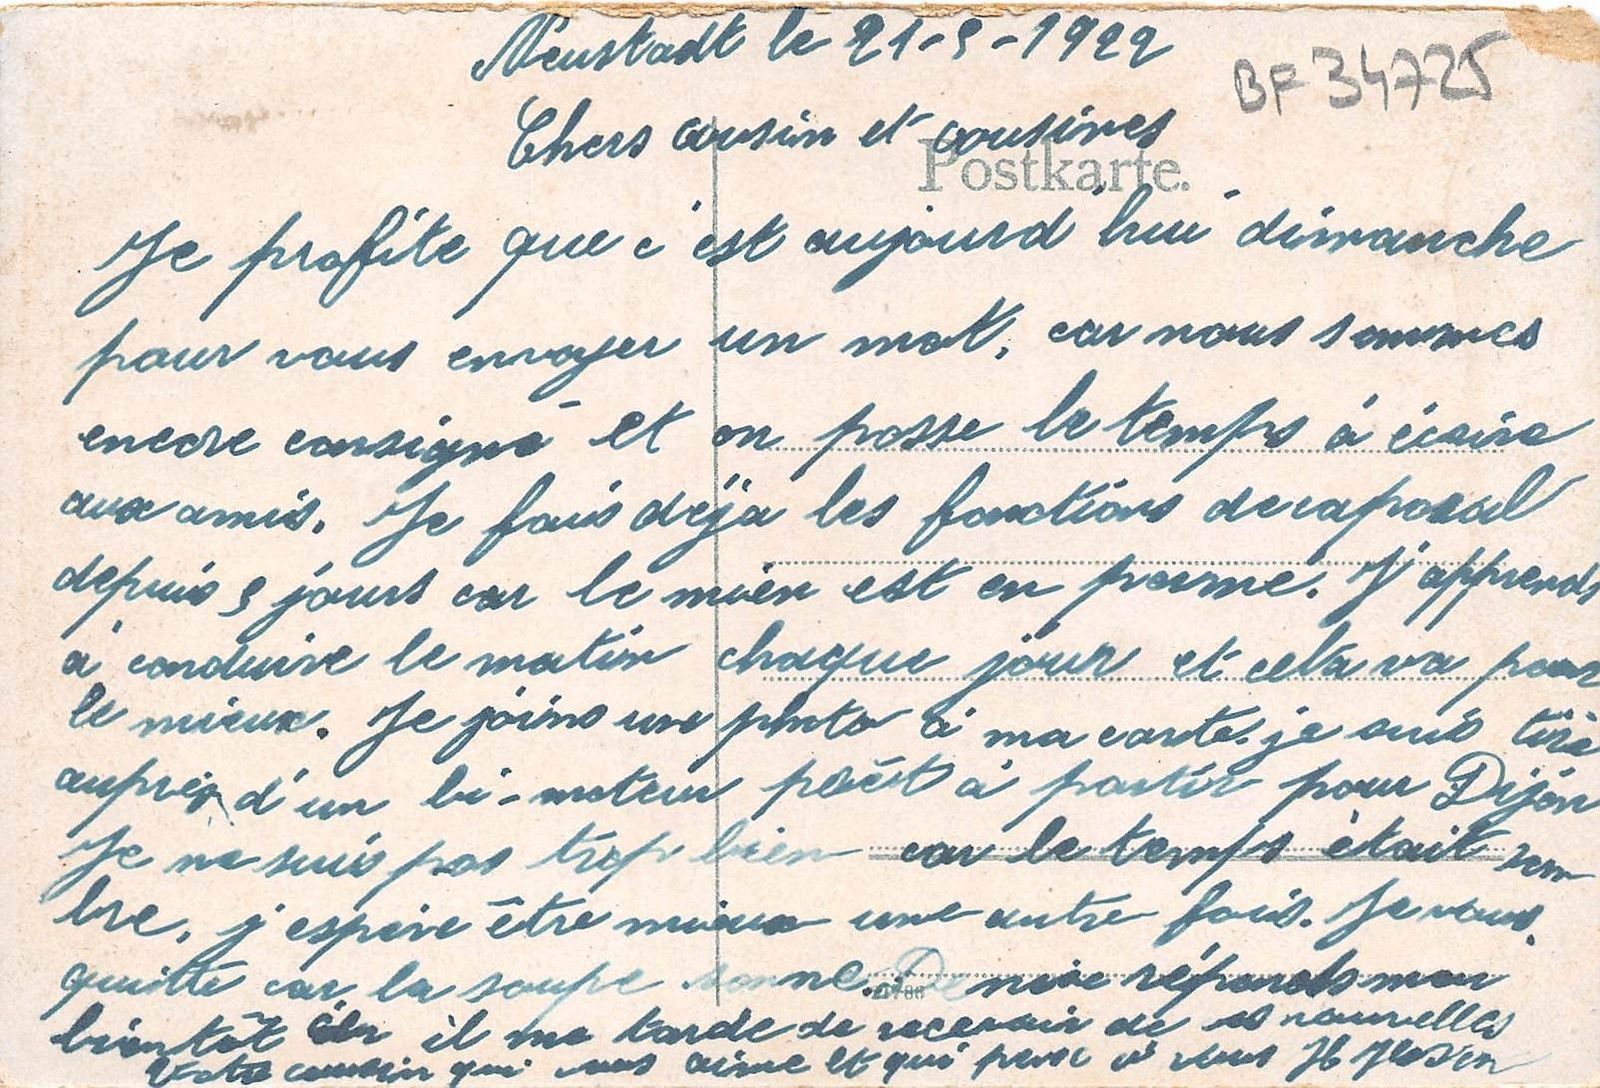 Neustadt le 21-5-1922
BF 34725
Chers cousin et cousines
Postkarte.
Je profite que c'est aujourd'hui dimanche
pour vous envoyer un mot, car nous sommes
encore consigné et on passe le temps à écrire
aux amis. Je fais déjà les fonctions de caporal
depuis 5 jours car le mien est en perme. J'apprends
à conduire le matin chaque jour et cela va pour
le mieux. Je joins une photo à ma carte. je suis tiré
auprès d'un bi-moteur prêt à partir pour Dijon
Je ne suis pas trop bien car le temps était som
bre, j'espère être mieux une autre fois. Je vous
quitte car la soupe sonne. Denise réponds mon
bientôt il me tarde de recevoir de es nouvelles
Votre cousin qui vous aime et qui pense à vous